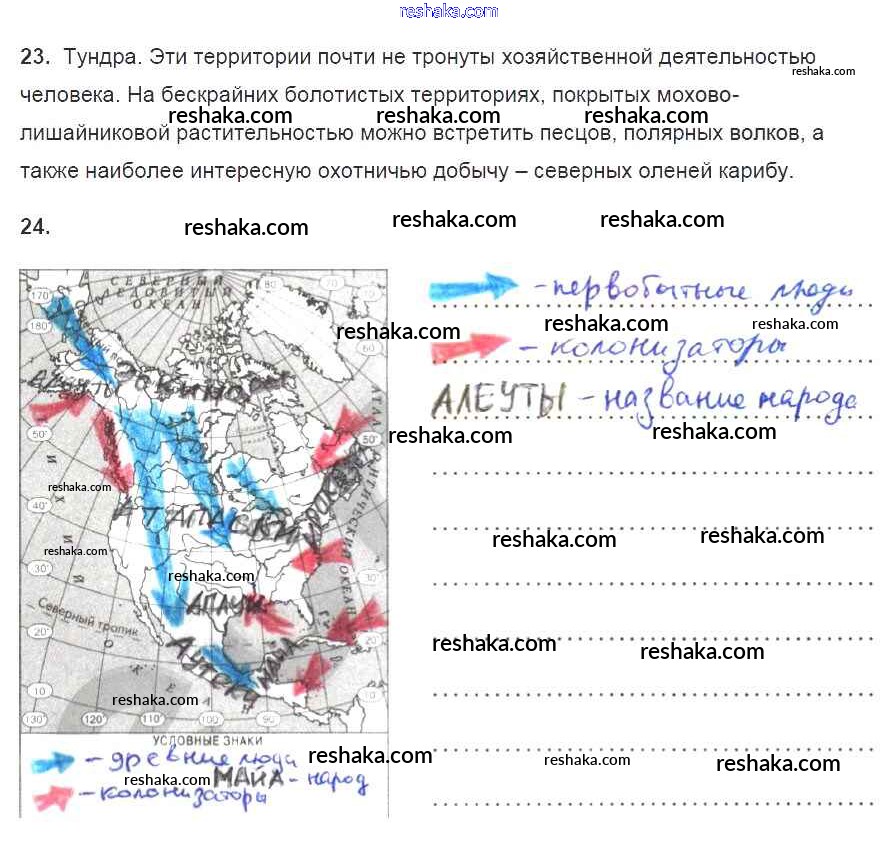 reshaka.com
23. Тундра. Эти территории почти не тронуты хозяйственной деятельностью
reshaka.com
человека. На бескрайних болотистых территориях, покрытых мохово-
reshaka.com reshaka.com reshaka.com
лишайниковой растительностью можно встретить песцов, полярных волков, а
также наиболее интересную охотничью добычу – северных оленей карибу.
24.
reshaka.com reshaka.com reshaka.com
СЕВЕРНЫЙ
ЛЕДОВИТЫЙ
ОКЕАН
80 70
170
180
60
- первобытные люди
reshaka.com reshaka.com reshaka.com
- колонизаторы
АЛЕУТЫ - название народа
reshaka.com reshaka.com
50 50
reshaka.com
40
АТАПАСКИ
АТЛАНТИЧЕСКИЙ ОКЕАН
ТИХИЙ
reshaka.com reshaka.com reshaka.com
30 30
reshaka.com
АПАЧИ
Северный тропик
20 20
reshaka.com reshaka.com
АЦТЕКИ МАЙЯ
ОКЕАН
10 10
reshaka.com
130 120 110 100 90
УСЛОВНЫЕ ЗНАКИ
- древние люди
reshaka.com reshaka.com reshaka.com
reshaka.com МАЙА - народ
- колонизаторы